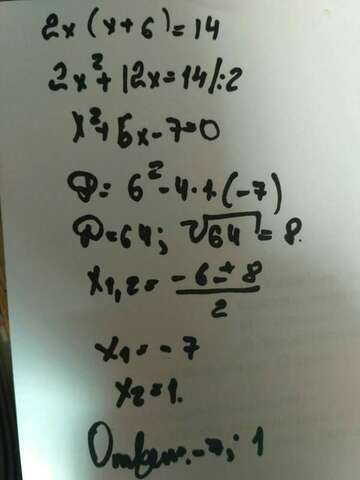 2x (x+6)=14
2x²+12x=14/:2
x²+6x-7=0
D=6²-4·1·(-7)
D=64; √64=8.
x1,2=(-6±8)/2
x1=-7
x2=1.
Ответ: -7; 1